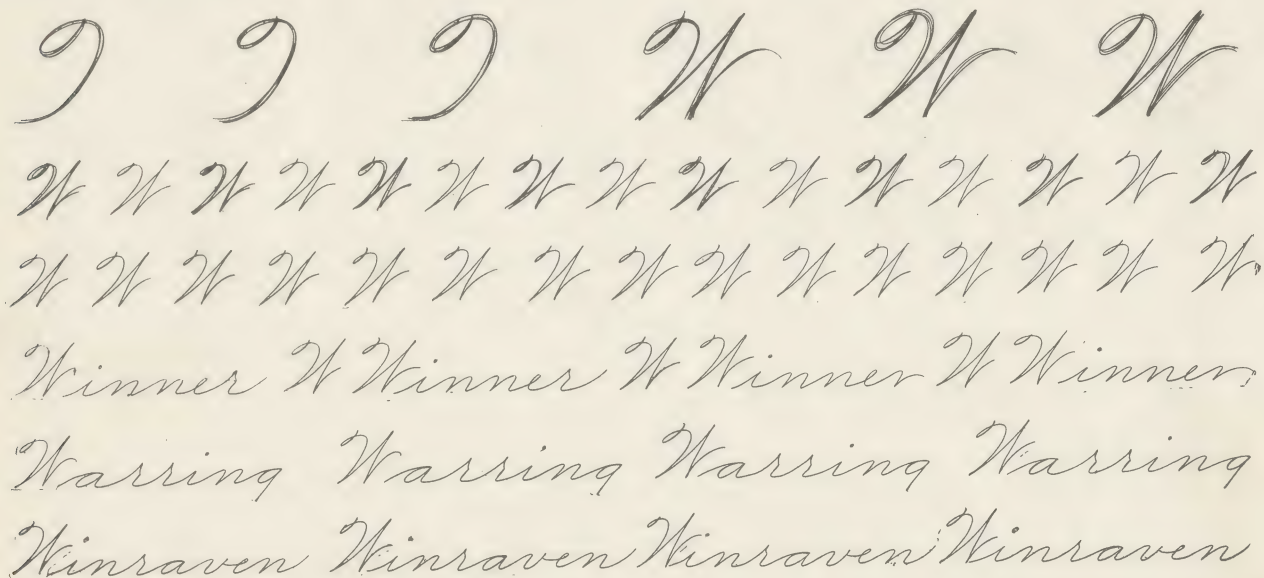 W W W
W W W W W W W W W W W W W W W
W W W W W W W W W W W W W W W
Winner W Winner W Winner W Winner
Warring Warring Warring Warring
Winraven Winraven Winraven Winraven